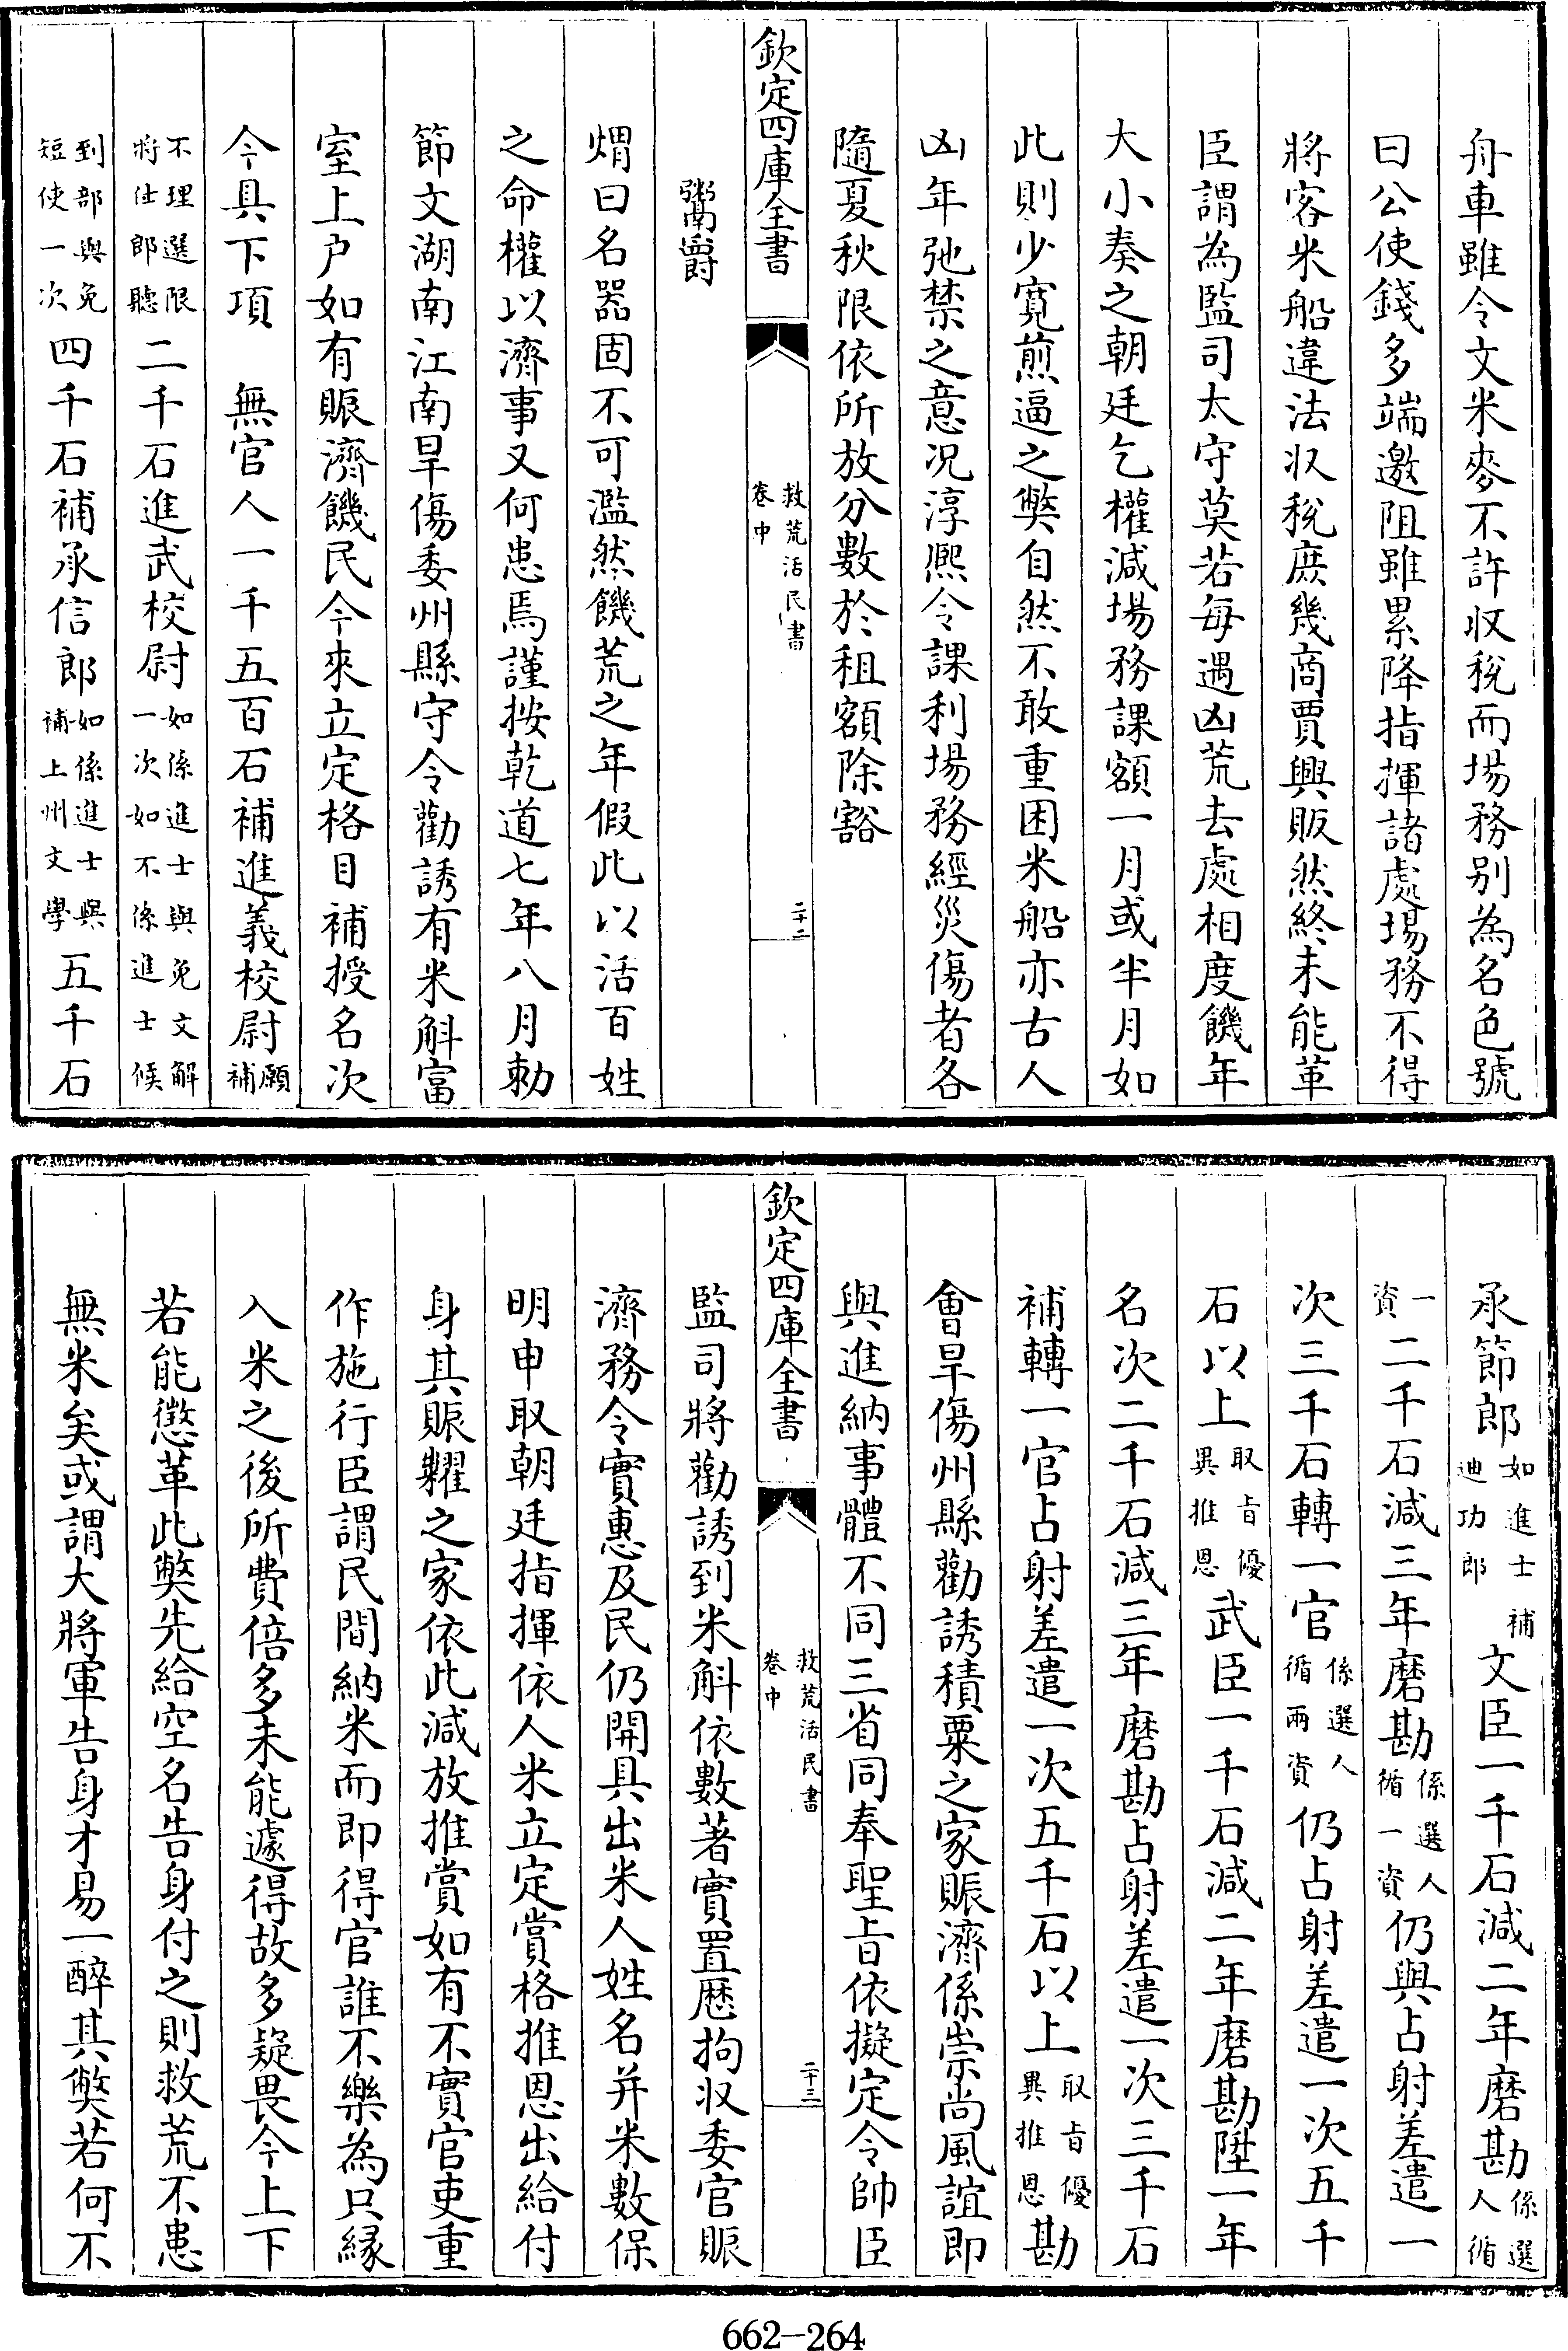 舟車雖令文米麥不許収稅而場務别為名色號
曰公使錢多端邀阻雖累降指揮諸處場務不得
將客米船違法収稅庶幾商賈興販然終未能革
臣謂為監司太守莫若每遇凶荒去處相度饑年
大小奏之朝廷乞權減場務課額一月或半月如
此則少寛煎逼之弊自然不敢重困米船亦古人
凶年弛禁之意况淳熙令課利場務經災傷者各
隨夏秋限依所放分數於租額除豁
欽定四庫全書
救荒活民書
卷中
二十二
鬻爵
煟曰名器固不可濫然饑荒之年假此以活百姓
之命權以濟事又何患焉謹按乾道七年八月勅
節文湖南江南旱傷委州縣守令勸誘有米斛富
室上户如有賑濟饑民今來立定格目補授名次
今具下項　無官人一千五百石補進義校尉願補
不理選限將仕郎聽二千石進武校尉如係進士與免文解一次如不係進士候
到部與免短使一次四千石補承信郎如係進士與補上州文學五千石
承節郎如進士補迪功郎文臣一千石減二年磨勘係選人循
一資二千石減三年磨勘係選人循一資仍與占射差遣一
次三千石轉一官係選人循兩資仍占射差遣一次五千
石以上取旨優異推恩武臣一千石減二年磨勘陞一年
名次二千石減三年磨勘占射差遣一次三千石
補轉一官占射差遣一次五千石以上取旨優異推恩勘
會旱傷州縣勸誘積粟之家賑濟係崇尚風誼即
與進納事體不同三省同奉聖旨依擬定令帥臣
欽定四庫全書
救荒活民書
卷中
二十三
監司將勸誘到米斛依數著實置歴拘収委官賑
濟務令實惠及民仍開具出米人姓名并米數保
明申取朝廷指揮依人米立定賞格推恩出給付
身其賑糶之家依此減放推賞如有不實官吏重
作施行臣謂民間納米而即得官誰不樂為只縁
入米之後所費倍多未能遽得故多疑畏今上下
若能懲革此弊先給空名告身付之則救荒不患
無米矣或謂大將軍告身才易一醉其弊若何不
662-264